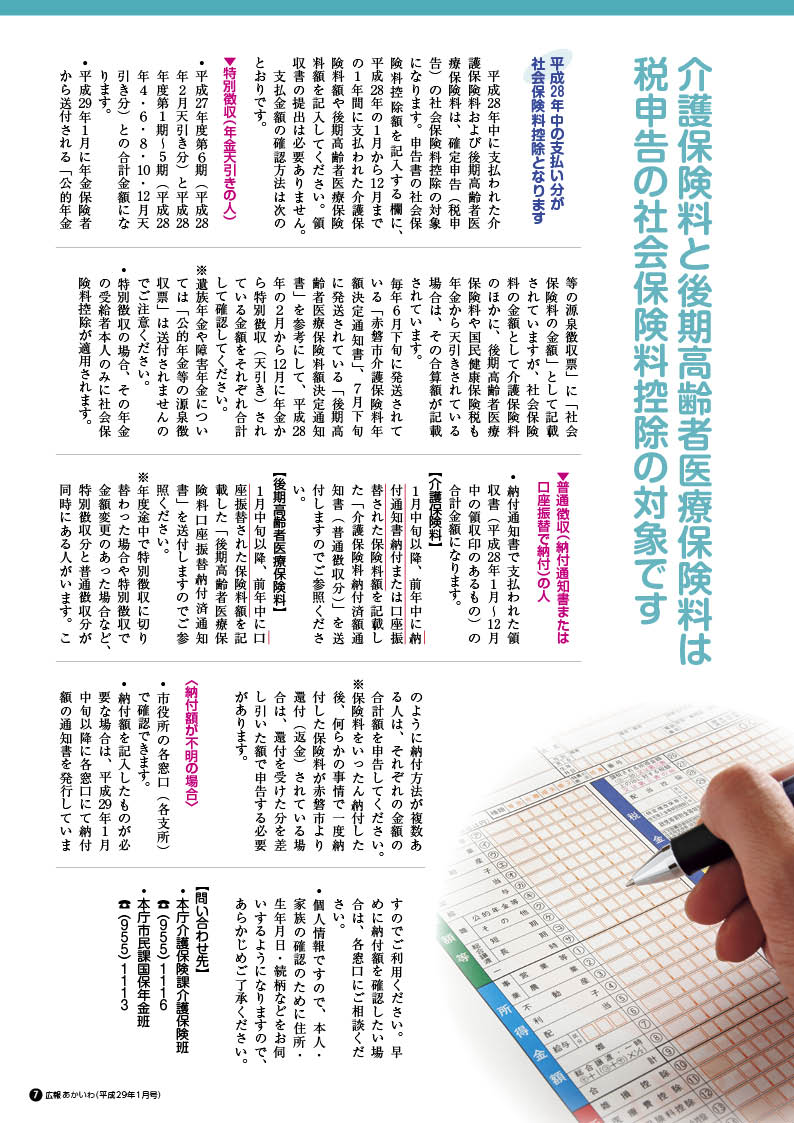 介護保険料と後期高齢者医療保険料は
税申告の社会保険料控除の対象です
平成28年中の支払い分が
社会保険料控除となります
平成28年中に支払われた介
護保険料および後期高齢者医
療保険料は、確定申告（税申
告）の社会保険料控除の対象
になります。申告書の社会保
険料控除額を記入する欄に、
平成28年の1月から12月まで
の1年間に支払われた介護保
険料額や後期高齢者医療保険
料額を記入してください。領
収書の提出は必要ありません。
支払金額の確認方法は次の
とおりです。
▼特別徴収（年金天引きの人）
・平成27年度第6期（平成28
年2月天引き分）と平成28
年度第1期～5期（平成28
年4・6・8・10・12月天
引き分）との合計金額にな
ります。
・平成29年1月に年金保険者
から送付される「公的年金
等の源泉徴収票」に「社会
保険料の金額」として記載
されていますが、社会保険
料の金額として介護保険料
のほかに、後期高齢者医療
保険料や国民健康保険税も
年金から天引きされている
場合は、その合算額が記載
されています。
毎年6月下旬に発送されて
いる「赤磐市介護保険料年
額決定通知書」、7月下旬
に発送されている「後期高
齢者医療保険料額決定通知
書」を参考にして、平成28
年の2月から12月に年金か
ら特別徴収（天引き）され
ている金額をそれぞれ合計
して確認してください。
※遺族年金や障害年金につい
ては「公的年金等の源泉徴
収票」は送付されませんの
でご注意ください。
・特別徴収の場合、その年金
の受給者本人のみに社会保
険料控除が適用されます。
▼普通徴収（納付通知書または
口座振替で納付）の人
・納付通知書で支払われた領
収書（平成28年1月～12月
中の領収印のあるもの）の
合計金額になります。
【介護保険料】
1月中旬以降、前年中に納
付通知書納付または口座振
替された保険料額を記載し
た「介護保険料納付済額通
知書（普通徴収分）」を送
付しますのでご参照くださ
い。
【後期高齢者医療保険料】
1月中旬以降、前年中に口
座振替された保険料額を記
載した「後期高齢者医療保
険料口座振替納付済通知
書」を送付しますのでご参
照ください。
※年度途中で特別徴収に切り
替わった場合や特別徴収で
金額変更のあった場合など、
特別徴収分と普通徴収分が
同時にある人がいます。こ
のように納付方法が複数あ
る人は、それぞれの金額の
合計額を申告してください。
※保険料をいったん納付した
後、何らかの事情で一度納
付した保険料が赤磐市より
還付（返金）されている場
合は、還付を受けた分を差
し引いた額で申告する必要
があります。
〈納付額が不明の場合〉
・市役所の各窓口（各支所）
で確認できます。
・納付額を記入したものが必
要な場合は、平成29年1月
中旬以降に各窓口にて納付
額の通知書を発行していま
すのでご利用ください。早
めに納付額を確認したい場
合は、各窓口にご相談くだ
さい。
・個人情報ですので、本人・
家族の確認のために住所・
生年月日・続柄などをお伺
いするようになりますので、
あらかじめご了承ください。
【問い合わせ先】
・本庁介護保険課介護保険班
☎（955）1116
・本庁市民課国保年金班
☎（955）1113
7 広報あかいわ（平成29年1月号）
所得金額